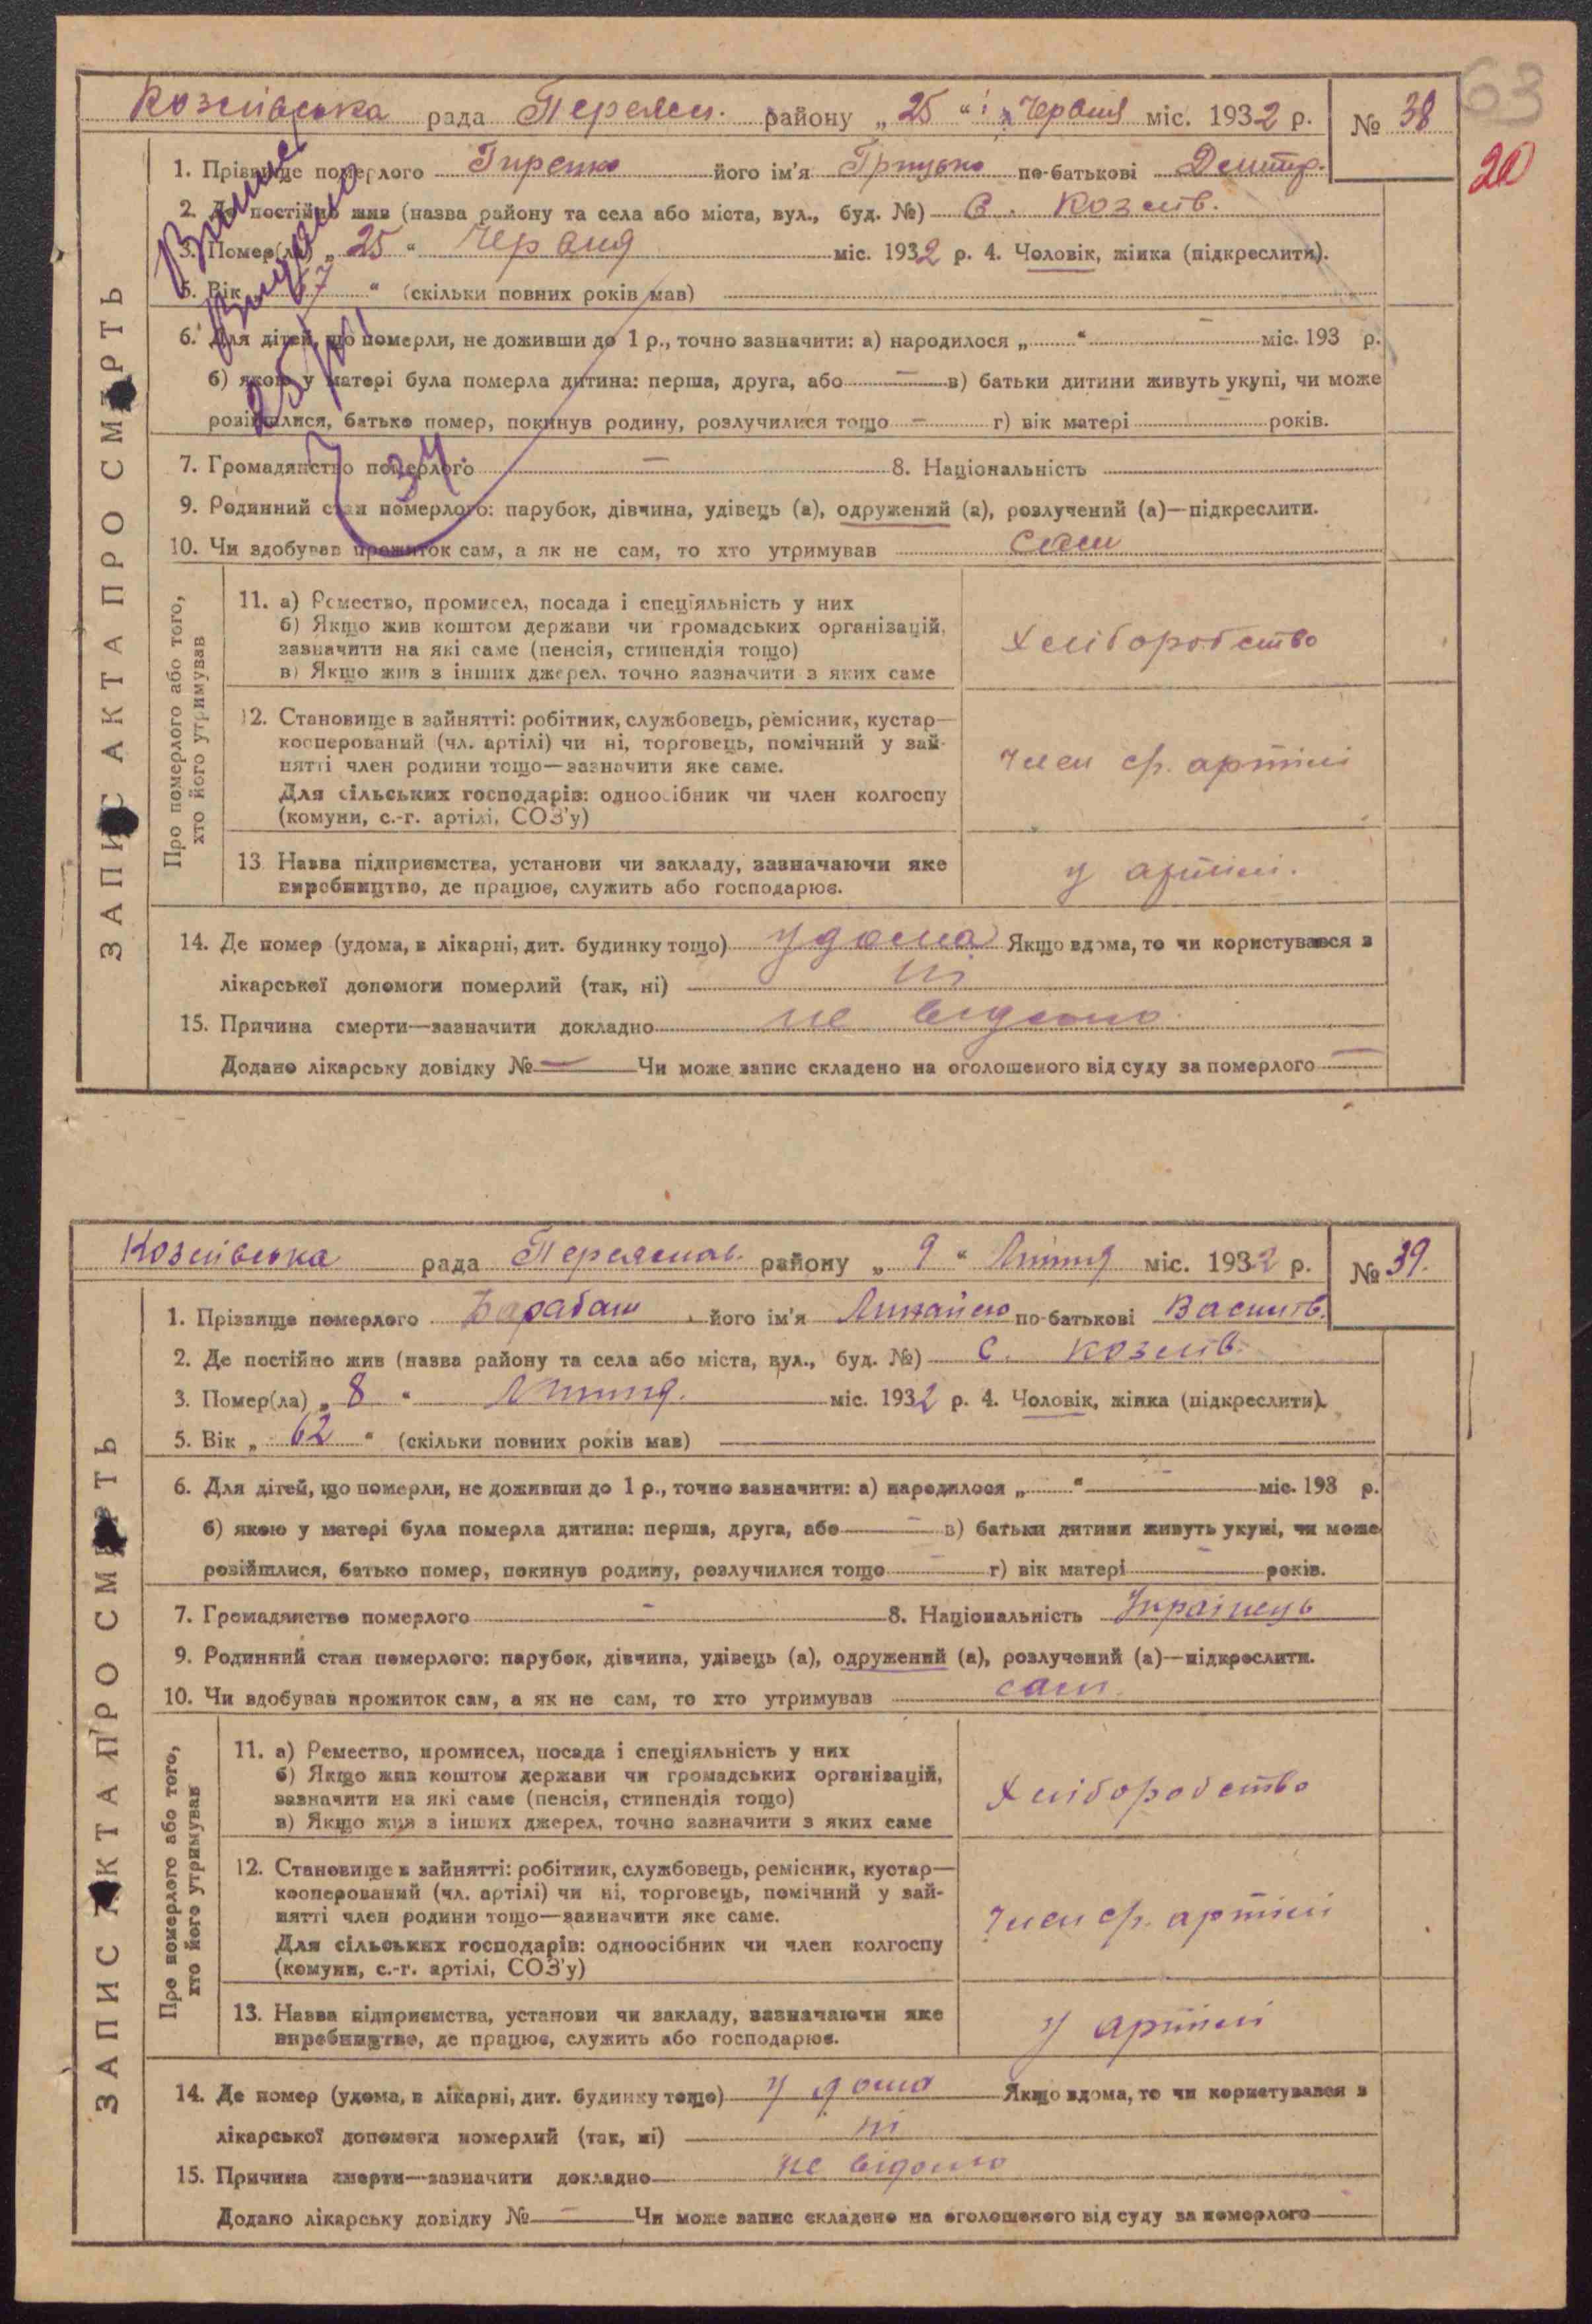 63
20
Козлівська рада Переясл. району „ 25 “ Червня міс. 1932 р. № 38
1. Прізвище померлого його ім'я Грицько по-батькові Дмитр.
2. Де постійно жив (назва району та села або міста, вул., буд. №) с. Козлів.
3. Помер(ла) „ 25 “ Червня міс. 1932 р. 4. Чоловік, жінка (підкреслити).
5. Вік 67 “ (скільки повних років мав)
6. Для дітей, що померли, не доживши до 1 р., точно зазначити: а) народилося „ “ — міс. 193 р.
б) якою у матері була померла дитина: перша, друга, або — в) батьки дитини живуть укупі, чи може
розійшлися, батько помер, покинув родину, розлучилися тощо — г) вік матері — років.
7. Громадянство померлого — 8. Національність
9. Родинний стан померлого: парубок, дівчина, удівець (а), одружений (а), розлучений (а)—підкреслити.
10. Чи здобував прожиток сам, а як не сам, то хто утримував сам
ЗАПИС АКТА ПРО СМЕРТЬ
Про померлого або того, хто його утримував
11. а) Ремество, промисел, посада і спеціяльність у них
б) Якщо жив коштом держави чи громадських організацій,
зазначити на які саме (пенсія, стипендія тощо)
в) Якщо жив з інших джерел, точно зазначити з яких саме
Хліборобство
12. Становище в зайнятті: робітник, службовець, ремісник, кустар—
кооперований (чл. артілі) чи ні, торговець, помічний у зай-
нятті член родини тощо—зазначити яке саме.
Для сільських господарів: одноосібник чи член колгоспу
(комуни, с.-г. артілі, СОЗ'у)
Член ср. артілі
13. Назва підприємства, установи чи закладу, зазначаючи яке
виробництво, де працює, служить або господарює.
у артілі.
14. Де помер (удома, в лікарні, дит. будинку тощо) удома Якщо вдома, то чи користувався з
лікарської допомоги померлий (так, ні) ні
15. Причина смерти—зазначити докладно не відомо
Додано лікарську довідку № — Чи може запис складено на оголошеного від суду за померлого —
Козлівська рада Переяслав. району „ 9 “ Липня міс. 1932 р. № 39.
1. Прізвище померлого Барабаш його ім'я по-батькові Василів.
2. Де постійно жив (назва району та села або міста, вул., буд. №) с. Козлів.
3. Помер(ла) „ 8 “ Липня. міс. 1932 р. 4. Чоловік, жінка (підкреслити).
5. Вік „ 62 “ (скільки повних років мав)
6. Для дітей, що померли, не доживши до 1 р., точно зазначити: а) народилося „ “ — міс. 193 р.
б) якою у матері була померла дитина: перша, друга, або — в) батьки дитини живуть укупі, чи може
розійшлися, батько помер, покинув родину, розлучилися тощо — г) вік матері — років.
7. Громадянство померлого — 8. Національність Українець
9. Родинний стан померлого: парубок, дівчина, удівець (а), одружений (а), розлучений (а)—підкреслити.
10. Чи здобував прожиток сам, а як не сам, то хто утримував сам.
ЗАПИС АКТА ПРО СМЕРТЬ
Про померлого або того, хто його утримував
11. а) Ремество, промисел, посада і спеціяльність у них
б) Якщо жив коштом держави чи громадських організацій,
зазначити на які саме (пенсія, стипендія тощо)
в) Якщо жив з інших джерел, точно зазначити з яких саме
Хліборобство
12. Становище в зайнятті: робітник, службовець, ремісник, кустар—
кооперований (чл. артілі) чи ні, торговець, помічний у зай-
нятті член родини тощо—зазначити яке саме.
Для сільських господарів: одноосібник чи член колгоспу
(комуни, с.-г. артілі, СОЗ'у)
Член ср. артілі
13. Назва підприємства, установи чи закладу, зазначаючи яке
виробництво, де працює, служить або господарює.
у артілі
14. Де помер (удома, в лікарні, дит. будинку тощо) у дома Якщо вдома, то чи користувався з
лікарської допомоги померлий (так, ні) ні
15. Причина смерти—зазначити докладно не відомо
Додано лікарську довідку № — Чи може запис складено на оголошеного від суду за померлого